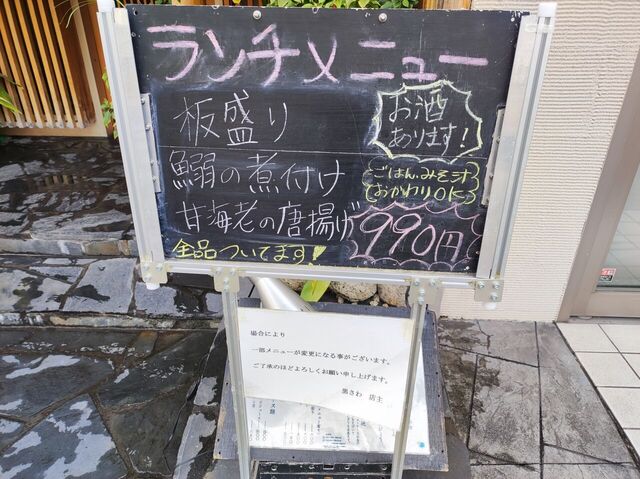 ランチメニュー
お酒
あります!
板盛り
鰯の煮付け
ごはん、みそ汁
おかわりOK
甘海老の唐揚げ
990円
全品ついてます!
場合により
一部メニューが変更になる事がございます。
ご了承のほどよろしくお願い申し上げます。
黒さわ 店主